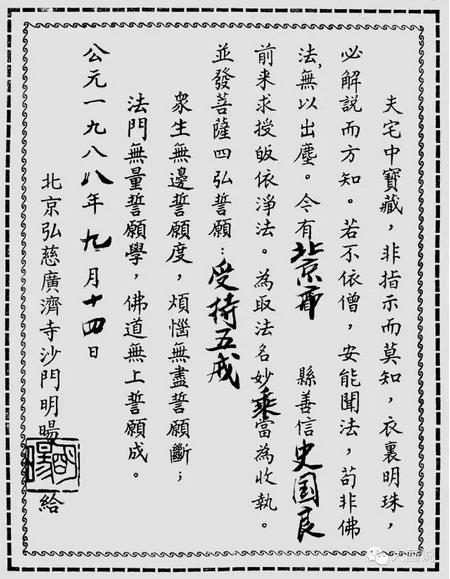 夫宅中寶藏，非指示而莫知，衣裏明珠，
必解説而方知。若不依僧，安能聞法，苟非佛
法，無以出塵。今有北京市　縣善信史国良
前来求授皈依淨法。為取法名妙乘當為收執。
並發菩薩四弘誓願：受持五戒
衆生無邊誓願度，煩惱無盡誓願斷；
法門無量誓願學，佛道無上誓願成。
公元一九八八年九月十四日
北京弘慈廣濟寺沙門明暘　給
明暘